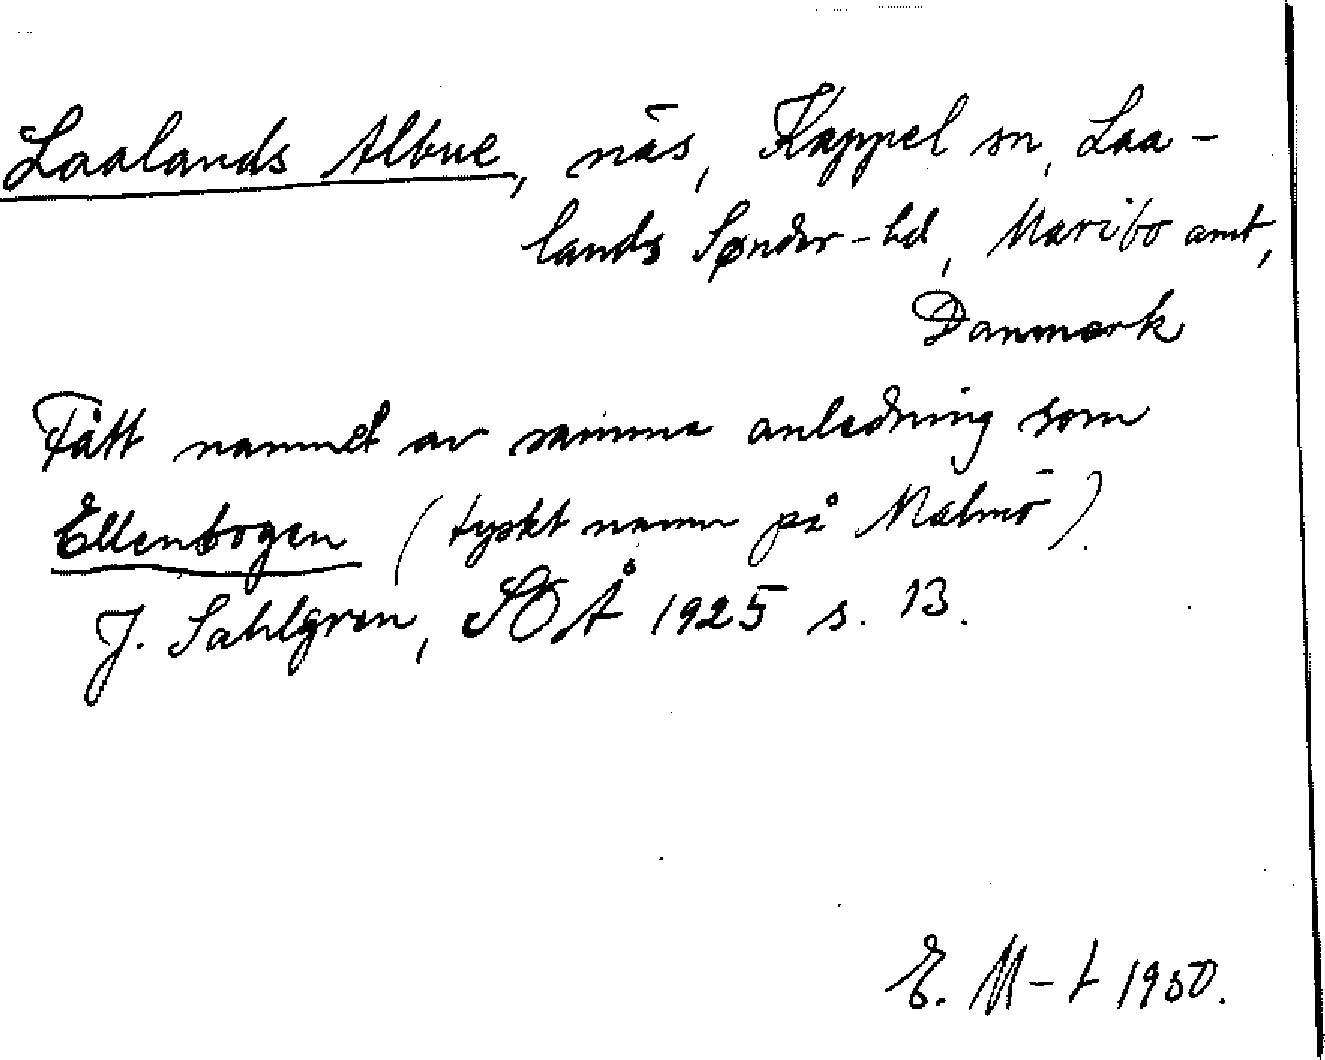 Laalands Albue, näs, Kappel sn, Laa-
lands Sønder-hd, Maribo amt,
Danmark
Fått namnet av samma anledning som
Ellenbogen (tyskt namn på Malmö).
J. Sahlgren, SOÅ 1925 s. 13.
E. M-t 1950.